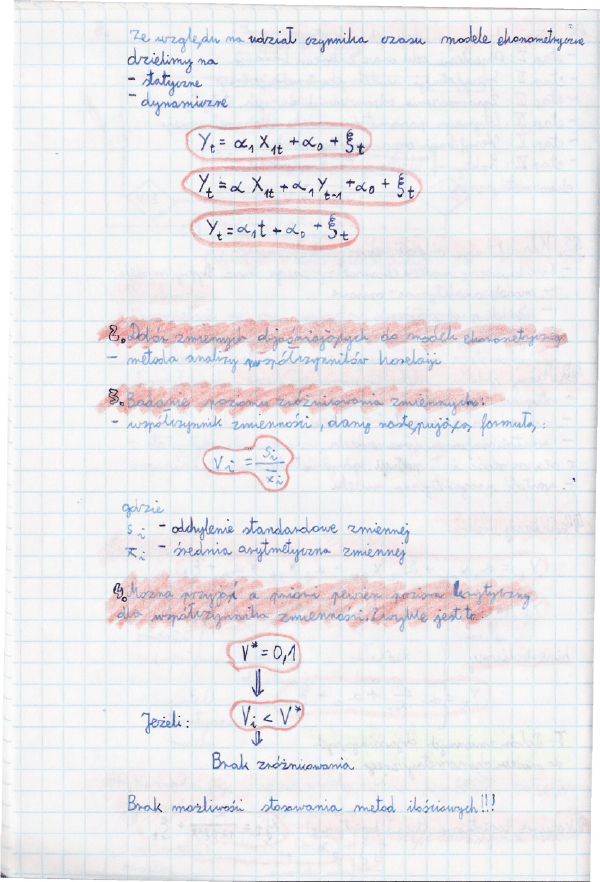 Ze względu na udział czynnika czasu modele ekonometryczne
dzielimy na
- statyczne
- dynamiczne
Y_t = α_1 X_1t + α_0 + ξ_t
Y_t = α X_1t + α_1 Y_t-1 + α_0 + ξ_t
Y_t = α_1 t + α_0 + ξ_t
2. Dobór zmiennych objaśniających do modelu ekonometrycznego
- metoda analizy współczynników korelacji
3. Badanie poziomu zróżnicowania zmiennych:
- współczynnik zmienności, dany następującą formułą:
V_i = s_i / x̄_i
gdzie
s_i - odchylenie standardowe zmiennej
x̄_i - średnia arytmetyczna zmiennej
4. Można przyjąć a priori pewien poziom krytyczny
dla współczynnika zmienności. Zwykle jest to
V* = 0,1
⇓
Jeżeli: V_i < V*
⇓
Brak zróżnicowania
Brak możliwości stosowania metod ilościowych!!!